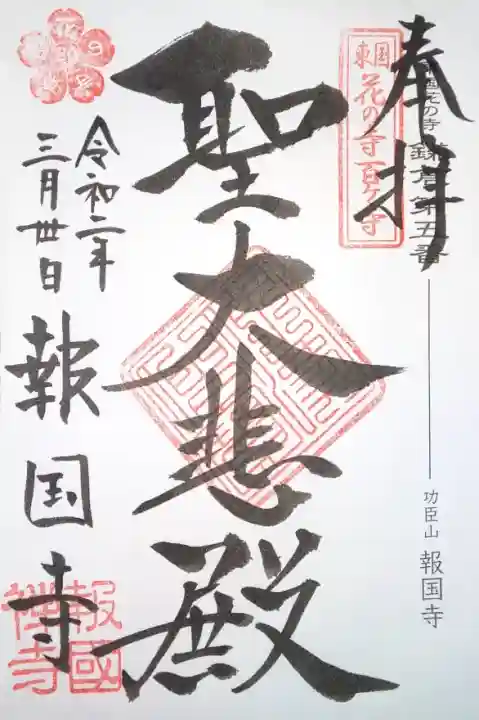 奉拝
東国
花の寺百ヶ寺
鎌倉第五番
功臣山 報国寺
聖大悲殿
令和二年
三月卅日
報国寺
報國
禅寺